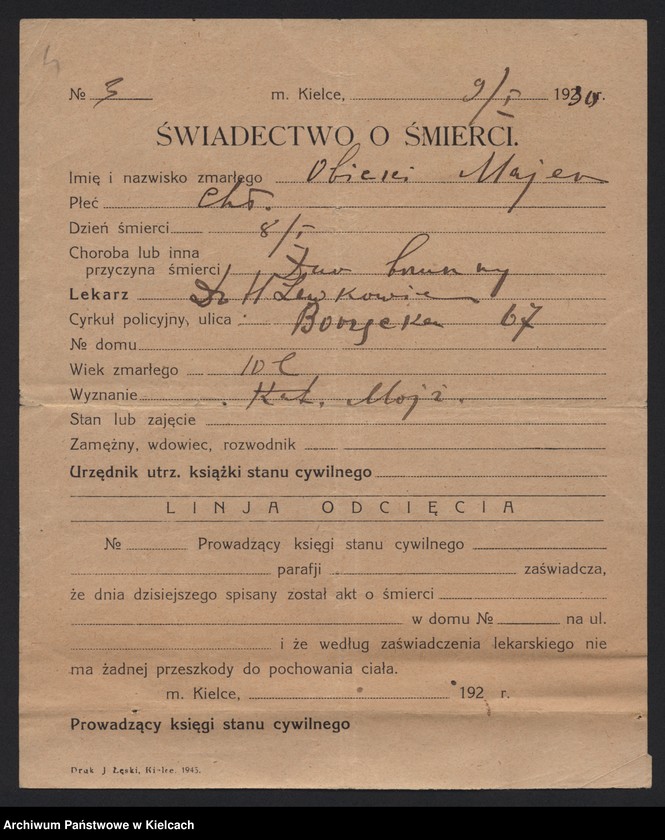 № 3 m. Kielce, 9/I 1930 r.
ŚWIADECTWO O ŚMIERCI.
Imię i nazwisko zmarłego Majer
Płeć
Dzień śmierci 8/I
Choroba lub inna
przyczyna śmierci
Lekarz Dr H Lewkowicz
Cyrkuł policyjny, ulica 67
№ domu
Wiek zmarłego 10 l
Wyznanie Kat. Mojż.
Stan lub zajęcie
Zamężny, wdowiec, rozwodnik
Urzędnik utrz. książki stanu cywilnego
LINJA ODCIĘCIA
№ Prowadzący księgi stanu cywilnego
parafji zaświadcza,
że dnia dzisiejszego spisany został akt o śmierci
w domu № na ul.
i że według zaświadczenia lekarskiego nie
ma żadnej przeszkody do pochowania ciała.
m. Kielce, 192 r.
Prowadzący księgi stanu cywilnego
Druk J Łęski, Kielce. 1945.
Archiwum Państwowe w Kielcach